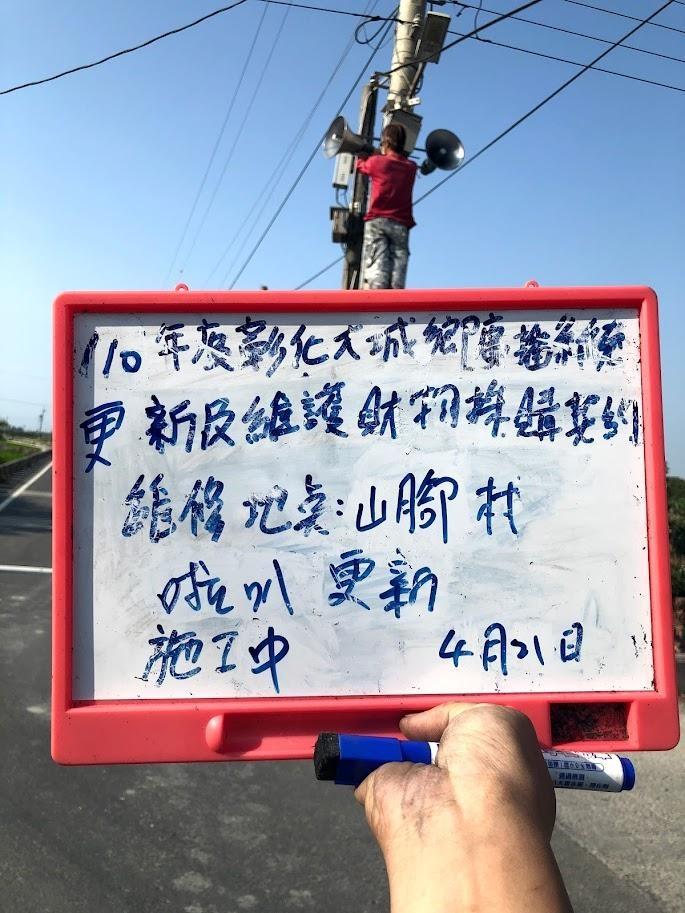 110年度彰化大城鄉廣播系統
更新及維護財物採購契約
維修地點:山腳村
喇叭 更新
施工中 4月21日